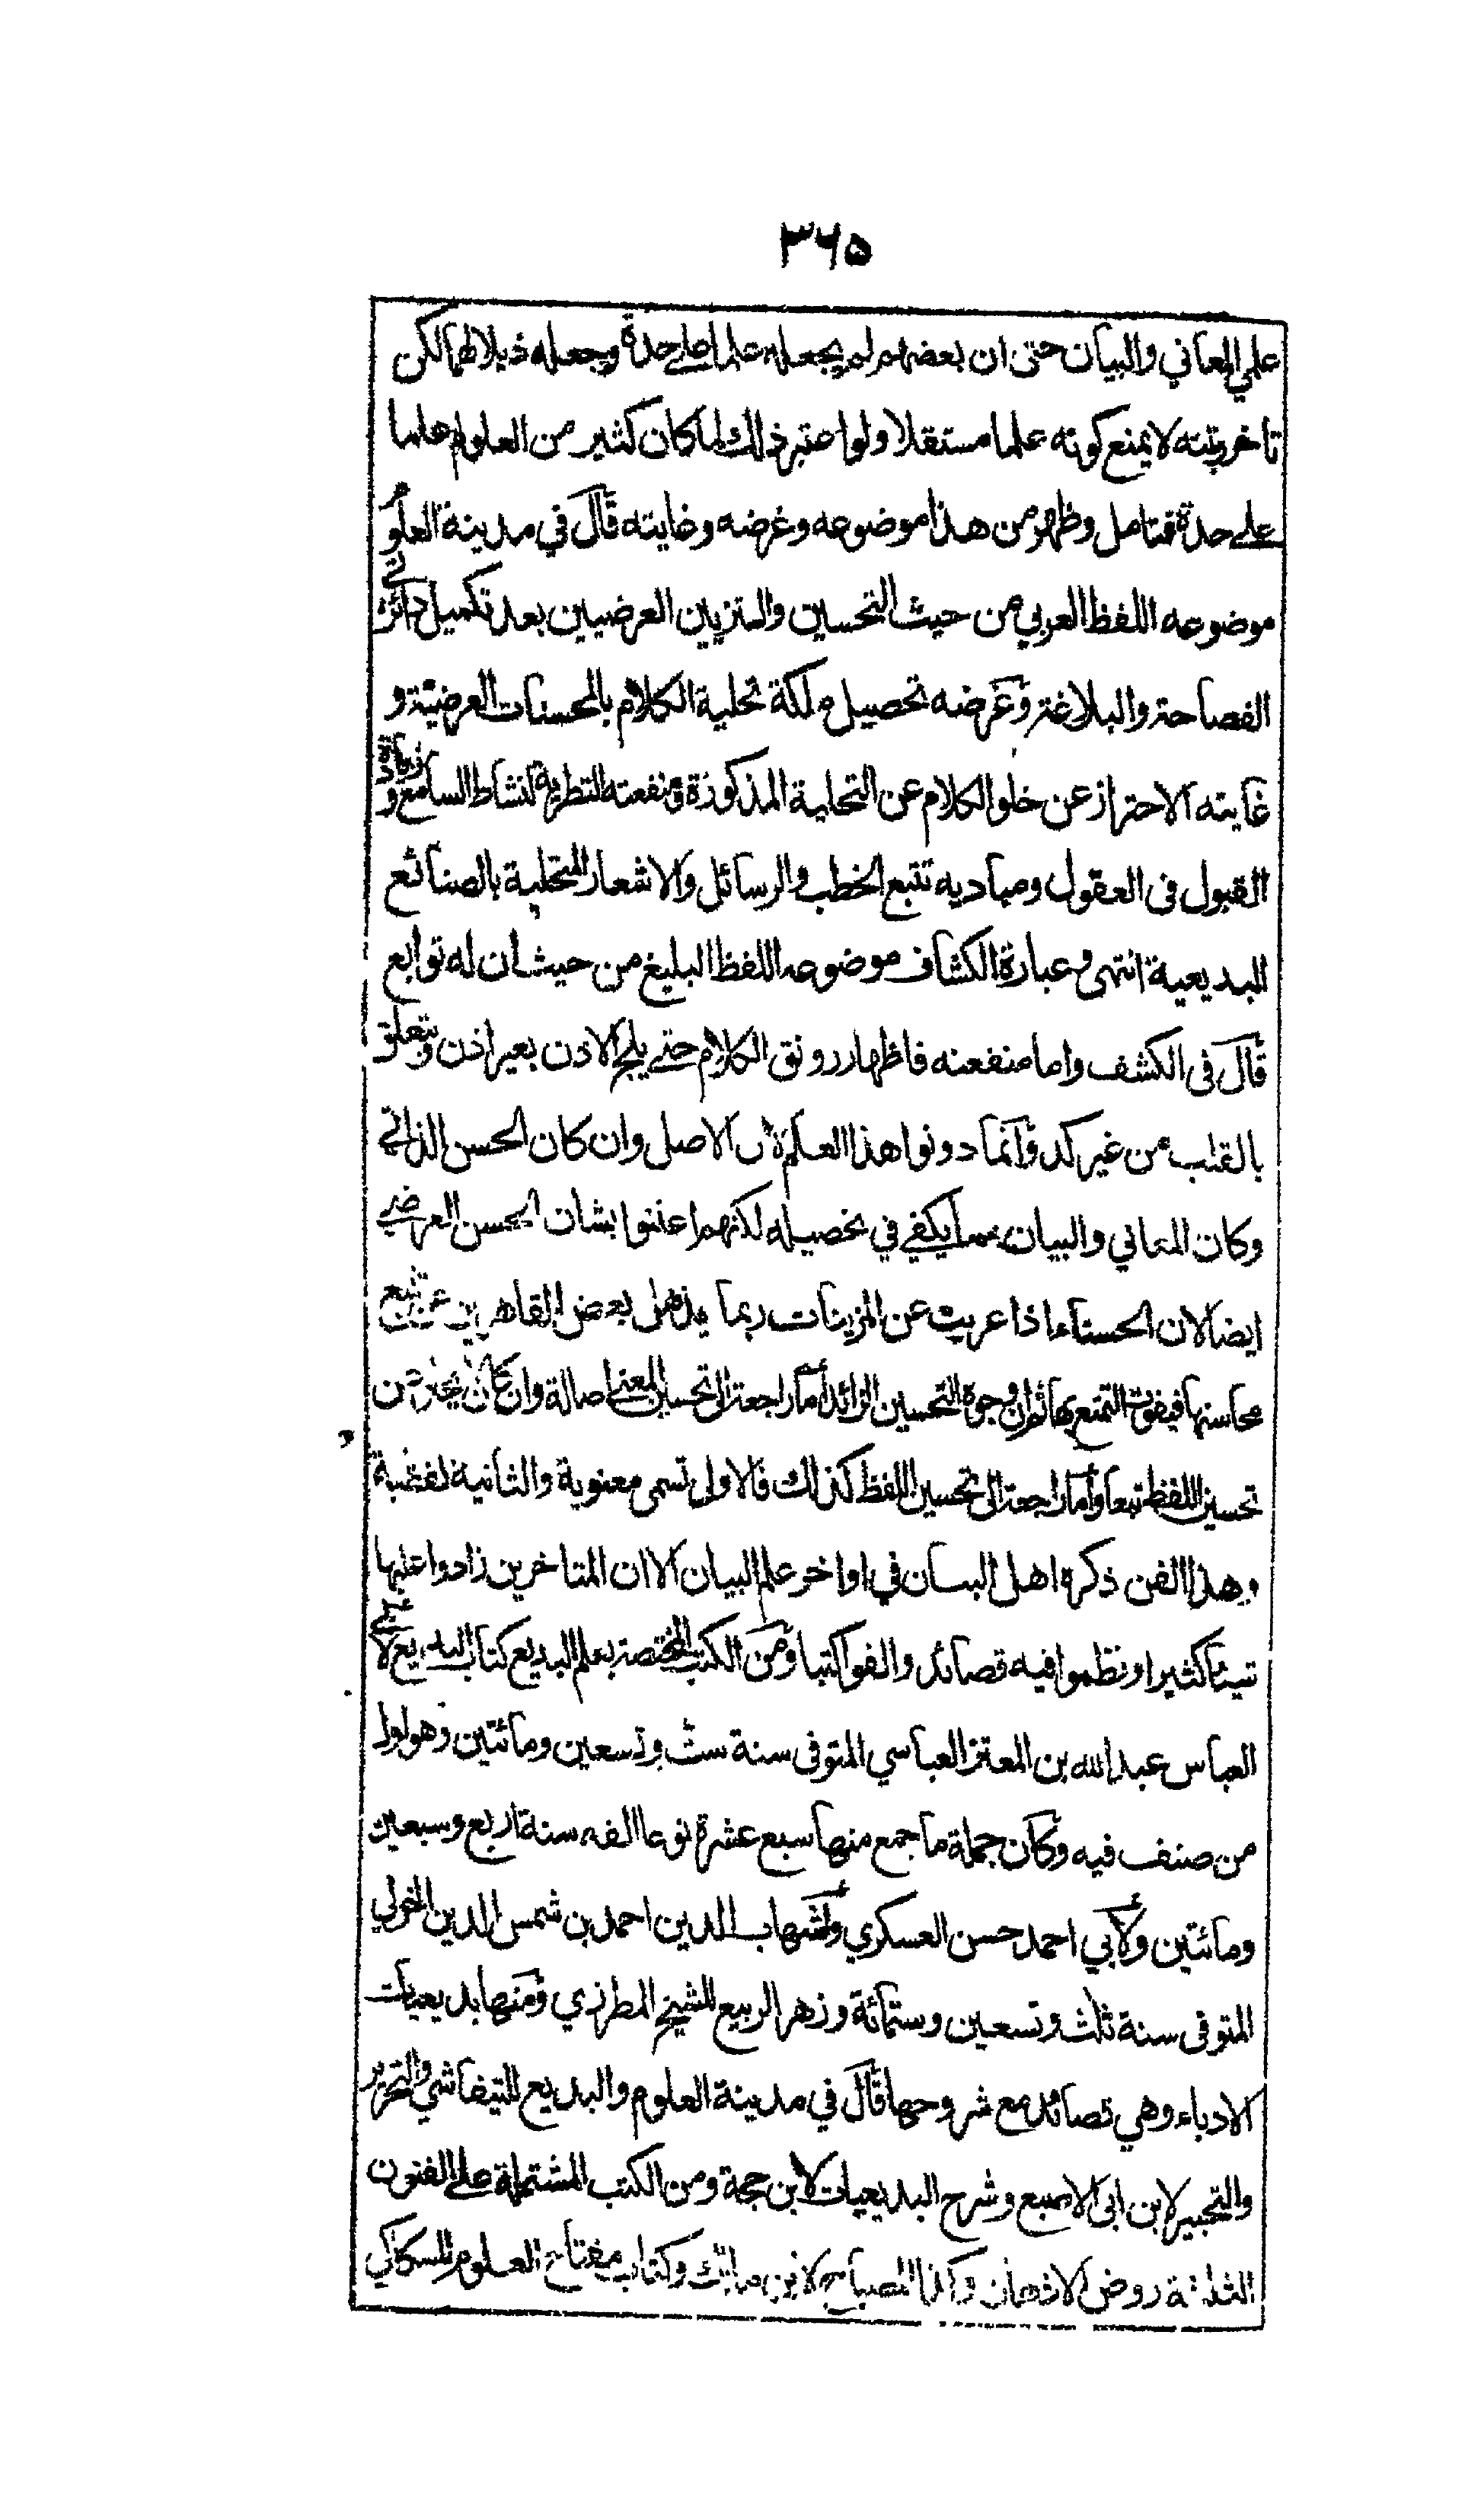 ٣٦٥
علمي المعاني والبيان حتى ان بعضهم لم يجعله علما على حدة ويجعله ذيلا لهما لكن
تاخر رتبته لا يمنع كونه علما مستقلا ولو اعتبر ذلك لما كان كثير من العلوم علما
على حدة فتامل وظهر من هذا موضوعه وغرضه وغايته قال في مدينة العلوم
موضوعه اللفظ العربي من حيث التحسين والتزيين العرضيين بعد تكميل دائرتي
الفصاحة والبلاغة وغرضه تحصيل ملكة تحلية الكلام بالمحسنات العرضية و
غايته الاحتراز عن خلو الكلام عن التحلية المذكورة ومنفعته التطرية لنشاط السامع وزيادة
القبول في العقول ومباديه تتبع الخطب والرسائل والاشعار المتحلية بالصنائع
البديعية انتهى وعبارة الكشاف موضوعه اللفظ البليغ من حيث ان له توابع
قال في الكشف واما منفعته فاظهار رونق الكلام حتى يلج الاذن بغير اذن ويتعلق
بالقلب من غير كد وانما دونوا هذا العلم لان الاصل وان كان الحسن الذاتي
وكان المعاني والبيان مما يكفي في تحصيله لكنهم اعتنوا بشان الحسن العرضي
ايضا لان الحسناء اذا عريت عن المزينات ربما يذهل بعض القاصرين عن تتبع
محاسنها فيفوت التمتع بها ثم ان وجوه التحسين الزائد اما راجعة الى تحسين المعنى اصالة وان كان لا يخلو عن
تحسين اللفظ تبعا واما راجعة الى تحسين اللفظ كذلك فالاولى تسمى معنوية والثانية لفظية
وهذا الفن ذكره اهل البيان في اواخر علم البيان الا ان المتاخرين زادوا عليها
شيئا كثيرا ونظموا فيه قصائد والفوا كتبا ومن الكتب المختصة بعلم البديع كتاب البديع لابي
العباس عبد الله بن المعتز العباسي المتوفى سنة ست وتسعين ومائتين وهو اول
من صنف فيه وكان جملة ما جمع منها سبع عشرة نوعا الفه سنة اربع وسبعين
ومائتين ولأبي احمد حسن العسكري ولشهاب الدين احمد بن شمس الدين الخولي
المتوفى سنة ثلث وتسعين وستمائة وزهر الربيع للشيخ المطرزي ومنها بديعيات
الادباء وهي قصائد مع شروحها قال في مدينة العلوم والبديع للتيفاشي والتحرير
والتحبير لابن ابي الاصبع وشرح البديعيات لابن حجة ومن الكتب المشتملة على الفنون
الثلثة روض الاذهان وكذا المصباح لابن مالك وكتاب مفتاح العلوم للسكاكي